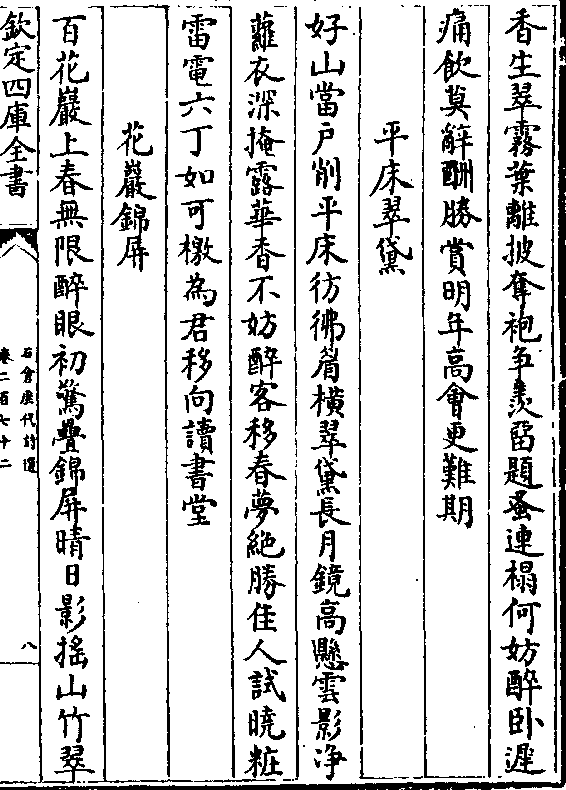 香生翠霧葉離披奪袍争羨留題蚤連榻何妨醉卧遲
痛飲莫辭酬勝賞明年高會更難期
平床翠黛
好山當戶削平床彷彿眉横翠黛長月鏡髙懸雲影净
蘿衣深掩露華香不妨醉客移春夢絶勝佳人試曉粧
雷電六丁如可檄為君移向讀書堂
花巖錦屏
百花巖上春無限醉眼初驚疊錦屏晴日影揺山竹翠
欽定四庫全書
石倉歷代詩選
卷二百七十二
八